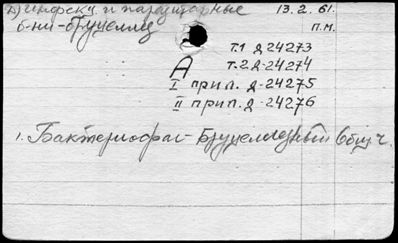 инфекц и паразитарные 13.2.61.
б-ни-бруцеллез П.М.
т.1 Д-24273
А т.2 Д-24274
I прил. Д-24275
II прил. Д-24276
1. Бактериофаг - Бруцеллезный